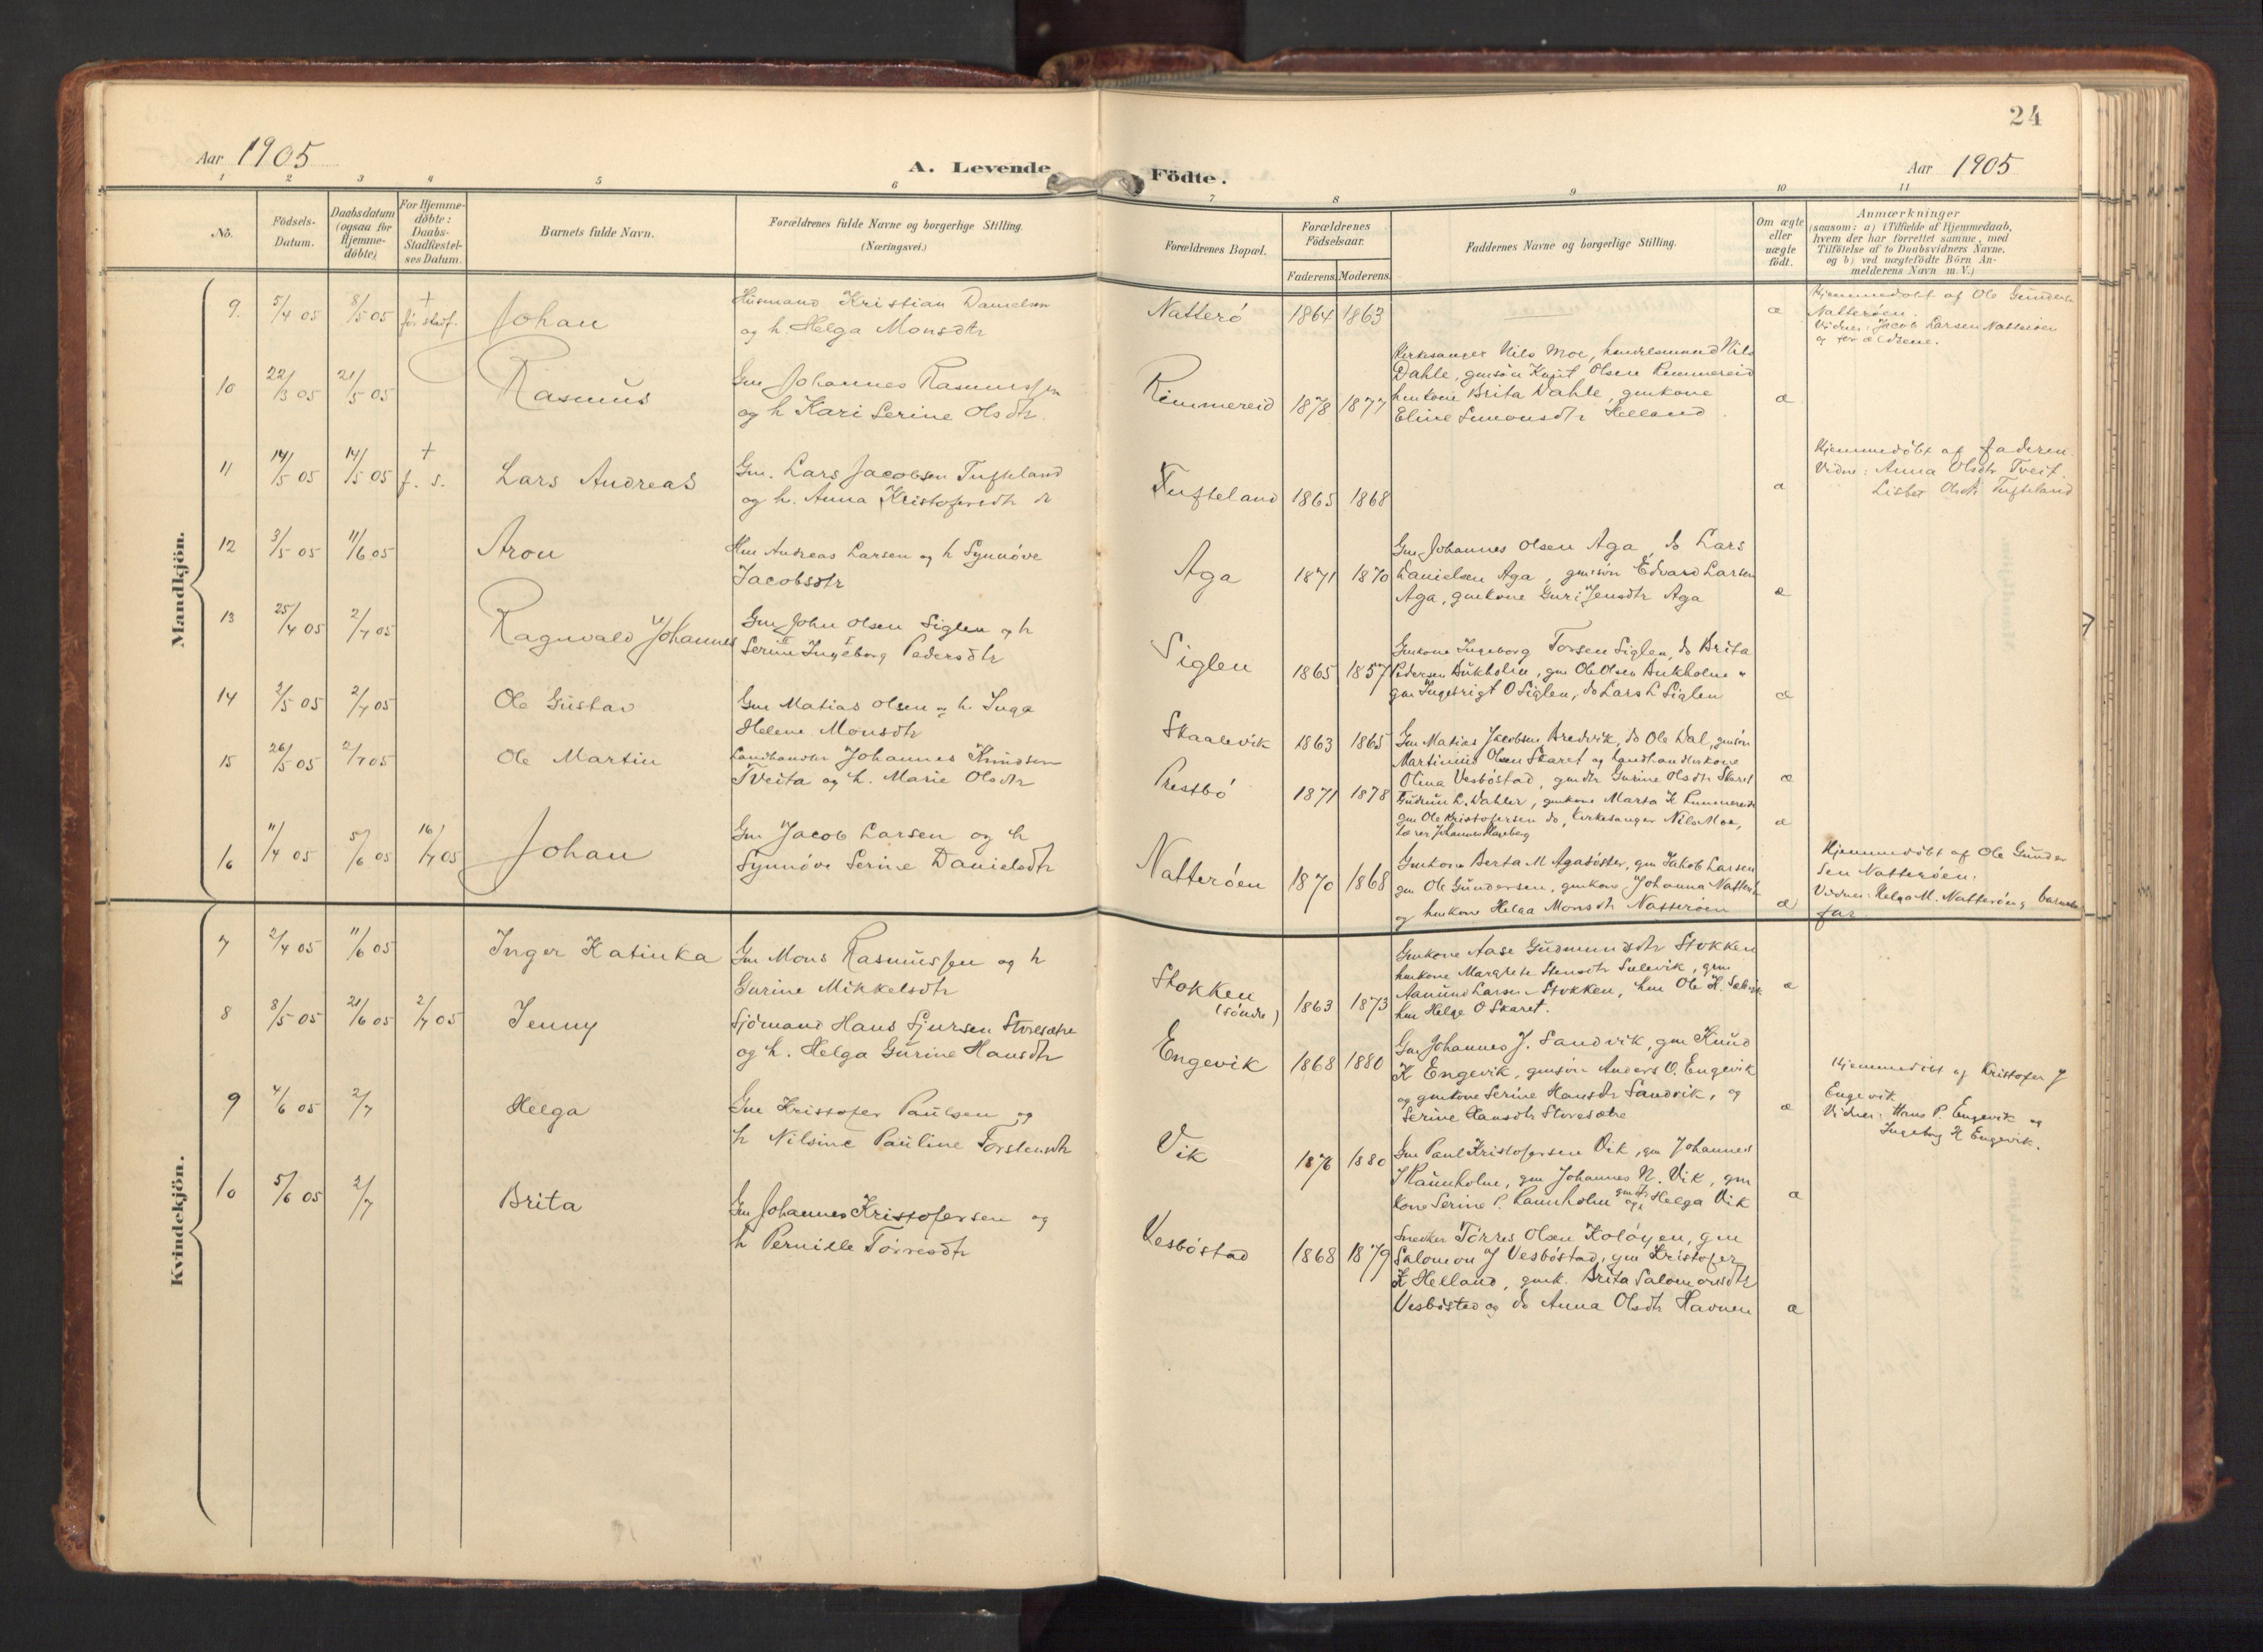 24
Aar 1905
A. Levende Födte.
Aar 1905
1 2 3 4 5 6 7 8 9 10 11
No.
Födsels-
Datum.
Daabsdatum
(ogsaa for
Hjemme-
döbte)
For Hjemme-
döbte:
Daabs-
Stadfæstel-
ses Datum.
Barnets fulde Navn.
Forældrenes fulde Navne og borgerlige Stilling.
(Næringsvei.)
Forældrenes Bopæl.
Forældrenes
Födselsaar.
Faderens. Moderens.
Faddernes Navne og borgerlige Stilling.
Om ægte
eller
uægte
födt.
Anmærkninger
(saasom: a) i Tilfælde af Hjemmedaab,
hvem der har forrettet samme, med
Tilföielse af to Daabsvidners Navne,
og b) ved uægtefödte Börn An-
melderens Navn m. V.)
Mandkjön.
9. 5/4 05 8/5 05 + för stadf. Johan
Husmand Kristian Danielsen
og h. Helga Monsdtr
Natterö 1864 1863 æ
Hjemmedöbt af Ole Gunders.
Natteröen.
Vidner: Jacob Larsen Natteröen
og forældrene.
10 22/3 05 21/5 05 Rasmus
Gm Johannes Rasmussen
og h Kari Serine Olsdtr.
Rimmereid 1878 1877
Kirkesanger Nils Moe, handelsmand Nils
Dahle, gmsön Knut Olsen Rimmereid
hmkone Brita Dahle, gmkone
Eline Simonsdtr Helland. æ
11 14/5 05 14/5 05 + f. s. Lars Andreas
Gm. Lars Jacobsen Tufteland
og h. Anna Kristofersdtr do
Tufteland 1865 1868 æ
Hjemmedöbt af faderen.
Vidne: Anna Olsdtr Tveit.
Lisbet Olsdtr Tufteland
12 3/5 05 11/6 05 Aron
Hm Andreas Larsen og h Synnöve
Jacobsdtr
Aga 1871 1870
Gm Johannes Olsen Aga, do Lars
Danielsen Aga, gmsön Edvard Larsen
Aga, gmkone Guri Jensdtr Aga æ
13 25/4 05 2/7 05 Ragnvald Johannes
Gm John Olsen Siglen og h
Serine Ingeborg Pedersdtr
Siglen 1865 1857
Gmkone Ingeborg Torsen Siglen, do Brita
Pedersen Bukholm, gm Ole Olsen Bukholm
gm Ingebrigt O Siglen, do Lars L Siglen æ
14 2/5 05 2/7 05 Ole Gustav
Gm Matias Olsen og h. Inga
Helene Monsdtr
Skaalevik 1863 1865
Gm Matias Jacobsen Bredvik, do Ole Dal, gmsön
Martinius Olsen Skaret og Landhandlerkone
Olina Vesböstad, gmdtr Gurine Olsdtr Skaret æ
15 26/5 05 2/7 05 Ole Martin
Landhandler Johannes Knudsen
Tveita og h. Marie Olsdtr
Prestbö 1871 1878
Gudrun L. Dahler, gmkone Marta K Rimmereid
gm Ole Kristofersen do, Kirkesanger Nils Moe,
Lærer Johannes æ
16 11/4 05 5/6 05 16/7 05 Johan
Gm Jacob Larsen og h
Synnöve Serine Danielsdtr
Natteröen 1870 1868
Gmkone Berta M Agasöster, gm Jakob Larsen
gm Ole Gundersen, gmkone Johanna Natterö
og hmkone Helga Monsdtr Natteröen æ
Hjemmedöbt af Ole Gunder
sen Natteröen.
Vidner: Helga M. Natteröen og barnets
far.
Kvindekjön.
7 2/4 05 11/6 05 Inger Katinka
Gm Mons Rasmussen og h
Gurine Mikkelsdtr
Stokken
(söndre) 1863 1873
Gmkone Aase Gudmundsdtr Stokken
hmkone Margrete Stensdtr Sælevik, gm
Aamund Larsen Stokken, hm Ole H. Sælevik
hm Helge O Skaret. æ
8 8/5 05 21/6 05 2/7 05 Jenny
Sjömand Hans Sjursen Storesætre
og h. Helga Gurine Hansdtr
Engevik 1868 1880
Gm Johannes J. Sandvik, gm Knud
K Engevik, gmsön Anders O. Engevik
og gmkone Serine Hansdtr Sandvik, og
Serine Hansdtr Storesætre æ
Hjemmedöbt af Kristofer J
Engevik
Vidner: Hans P. Engevik og
Ingeborg H Engevik.
9 4/6 05 2/7 Helga
Gm Kristofer Paulsen og
h Nilsine Pauline Torstensdtr
Vik 1876 1880
Gm Paul Kristofersen Vik, gm Johannes
J Raunholm, gm Johannes N. Vik, gm
kone Serine P. Raunholm og Helga Vik æ
10 5/6 05 2/7 Brita
Gm Johannes Kristofersen og
h Pernille Törresdtr
Vesböstad 1868 1879
Snedker Törres Olsen Kolöyen, gm
Salomon J Vesböstad, gm Kristofer
K Helland, gmk. Brita Salomonsdtr
Vesböstad og do Anna Olsdtr Havnen æ